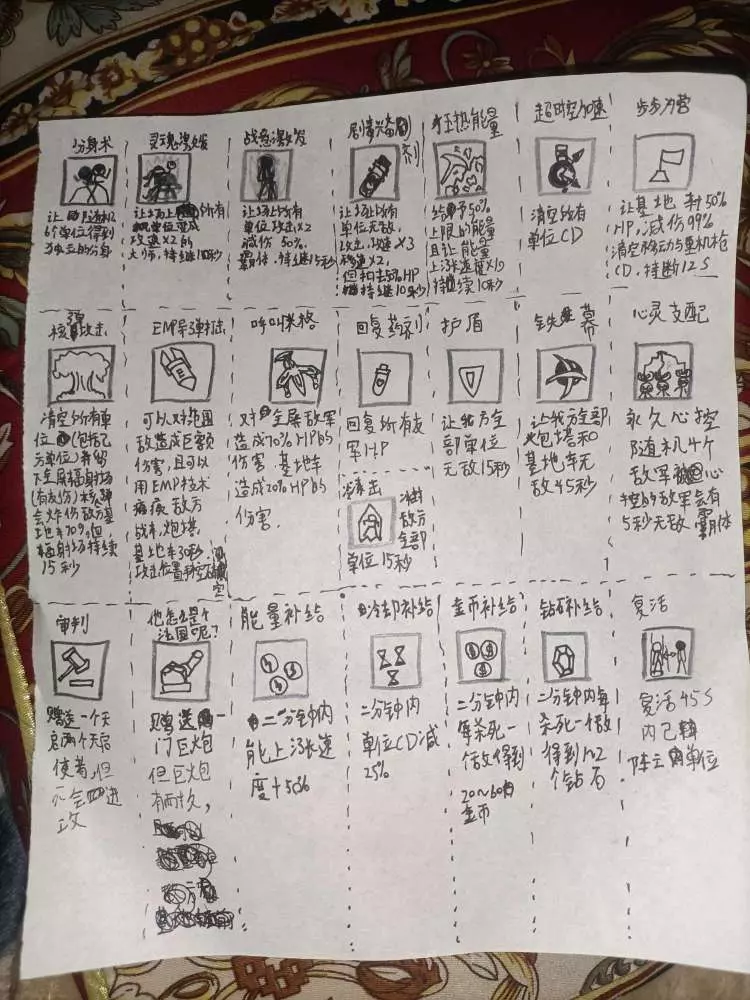 分身术
让随机
6个单位得到
独立的分身
灵魂激发
让场上所有
单位变成
攻速x2的
大师,持续10秒
战意激发
让场上所有
单位攻击x2
减伤50%,
霸体,持续15秒
剂
让场上所有
单位无敌,
攻击,攻速x3
移速x2,
但扣去50%HP
持续10秒
狂热能量
给予50%
上限的能量
且让能量
上涨速度x10
持续10秒
超时空加速
清空所有
单位CD
步步为营
让基地对50%
HP,减伤99%
清空移动与重机枪
CD,持续12S
核弹攻击
清空所有单
位(包括己
方单位)并留
下全屏辐射场
(有敌份)核弹
会炸伤敌方基
地车70%,但
辐射场持续
15秒
EMP导弹打击
可以对范围
敌造成巨额
伤害,且可以
用EMP技术
瘫痪敌方
战车,炮塔,
基地车30秒,
攻击位置
呼叫莱格
对全屏敌军
造成70%HP的
伤害 基地车
造成20%HP的
伤害.
回复药剂
回复所有友
军HP
冻击
冰冻
敌方
全部
单位15秒
护盾
让我方全
部单位
无敌15秒
铁幕
让我方全部
炮塔和
基地车无
敌45秒
心灵支配
永久心控
随机4个
敌军被心
控的敌军会有
5秒无敌 霸体
审判
赠送一个天
启两个天启
使者,但
不会进
攻
他怎么是个
法国呢?
赠送一
门巨炮
但巨炮
有耐久,
能量补给
二分钟内
能上涨速
度+50%
冷却补给
二分钟内
单位CD减
25%
金币补给
二分钟内
每杀死一
个敌得到
20~60
金币
钻石补给
二分钟内每
杀死一个敌
得到1~2
个钻石
复活
复活45S
内己
阵亡单位